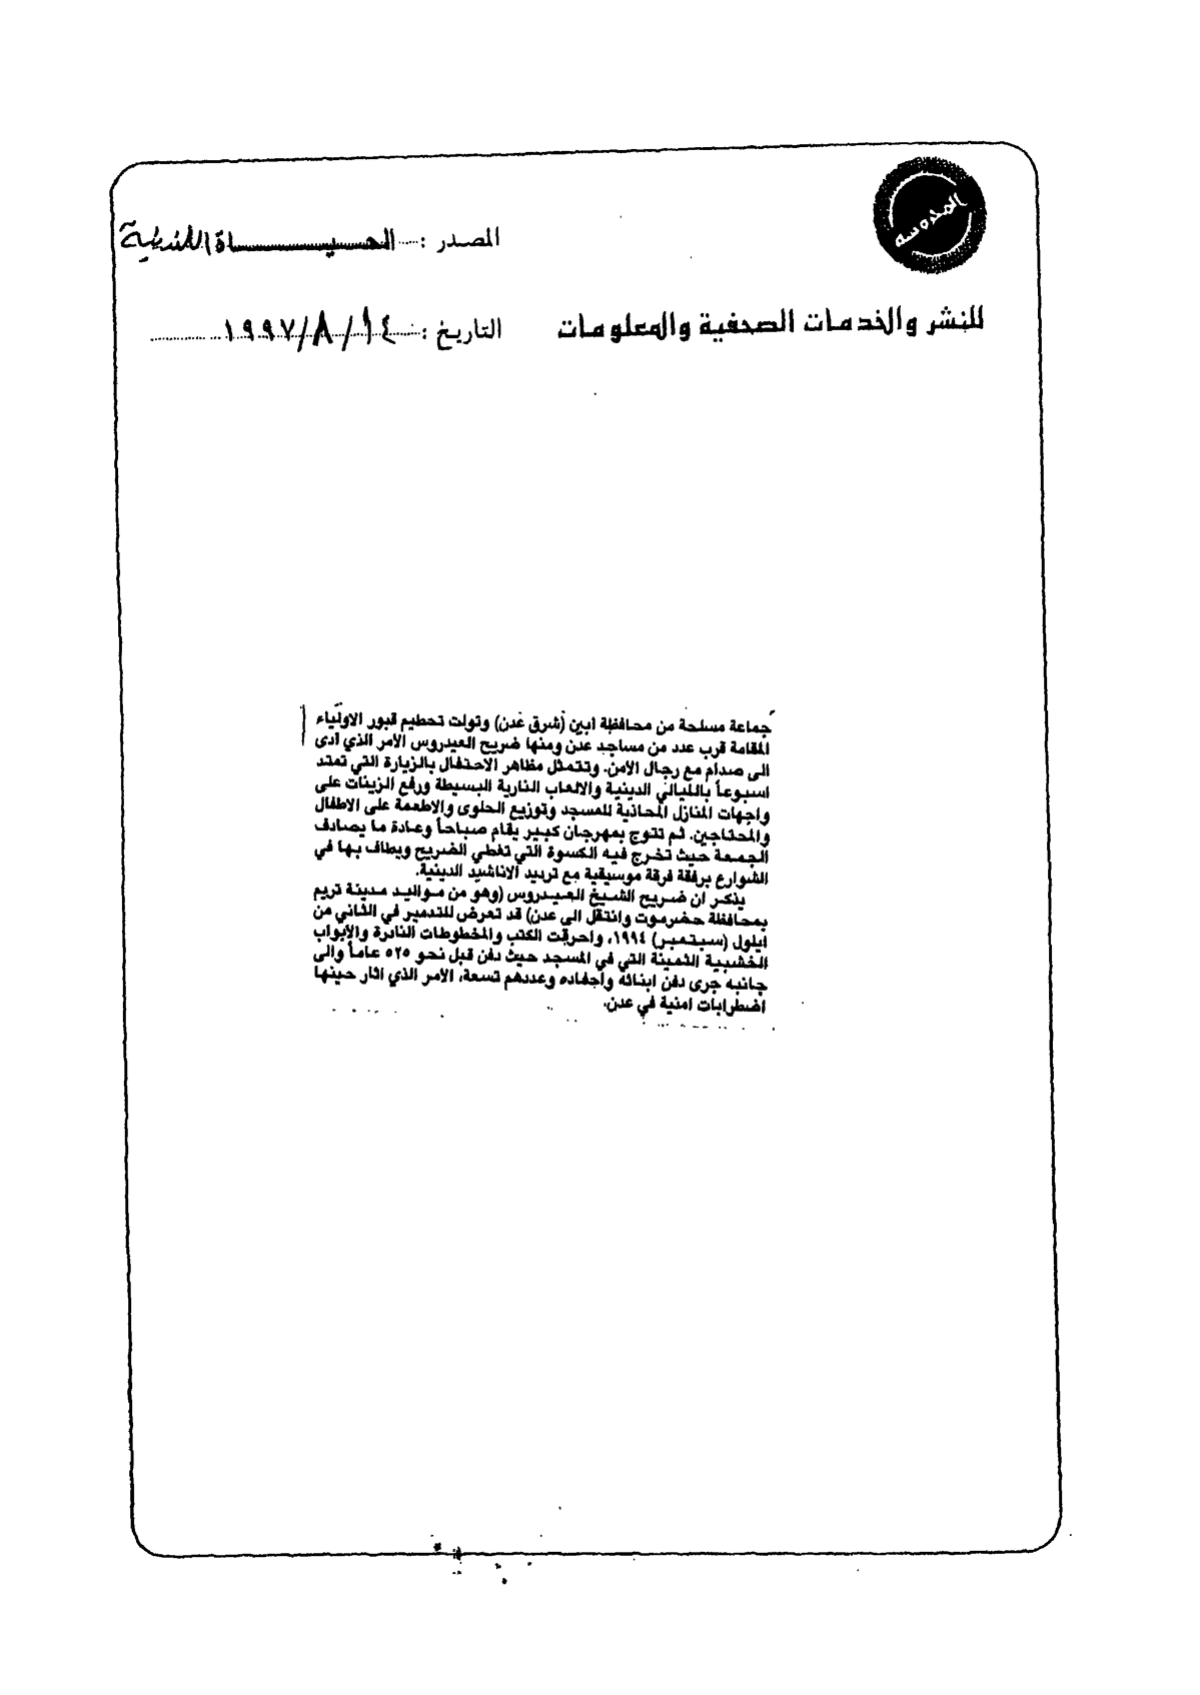 المحروسة
المصدر : الحيــــــاة اللندنية
للنشر والخدمات الصحفية والمعلومات
التاريخ : ١٤/٨/١٩٩٧
جماعة مسلحة من محافظة ابين (شرق عدن) وتولت تحطيم قبور الاولياء
المقامة قرب عدد من مساجد عدن ومنها ضريح العيدروس الأمر الذي ادى
الى صدام مع رجال الامن. وتتمثل مظاهر الاحتفال بالزيارة التي تمتد
اسبوعاً بالليالي الدينية والالعاب النارية البسيطة ورفع الزينات على
واجهات المنازل المحاذية للمسجد وتوزيع الحلوى والاطعمة على الاطفال
والمحتاجين. ثم تتوج بمهرجان كبير يقام صباحاً وعادة ما يصادف
الجمعة حيث تخرج فيه الكسوة التي تغطي الضريح ويطاف بها في
الشوارع برفقة فرقة موسيقية مع ترديد الاناشيد الدينية.
يذكر ان ضريح الشيخ العيدروس (وهو من مواليد مدينة تريم
بمحافظة حضرموت وانتقل الى عدن) قد تعرض للتدمير في الثاني من
ايلول (سبتمبر) ١٩٩٤، واحرقت الكتب والمخطوطات النادرة والأبواب
الخشبية الثمينة التي في المسجد حيث دفن قبل نحو ٥٢٥ عاماً والى
جانبه جرى دفن ابنائه وأحفاده وعددهم تسعة، الامر الذي اثار حينها
اضطرابات امنية في عدن.